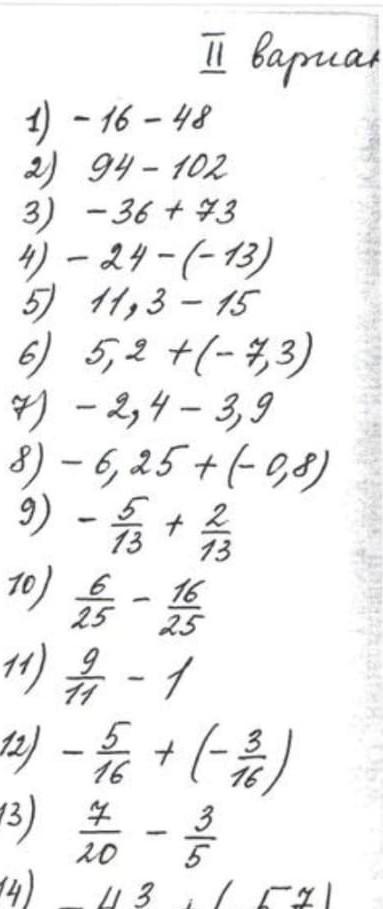 II вариан
1) - 16 - 48
2) 94 - 102
3) - 36 + 73
4) - 24 - (- 13)
5) 11,3 - 15
6) 5,2 + (- 7,3)
7) - 2,4 - 3,9
8) - 6,25 + (- 0,8)
9) - 5/13 + 2/13
10) 6/25 - 16/25
11) 9/11 - 1
12) - 5/16 + (- 3/16)
13) 7/20 - 3/5
14)